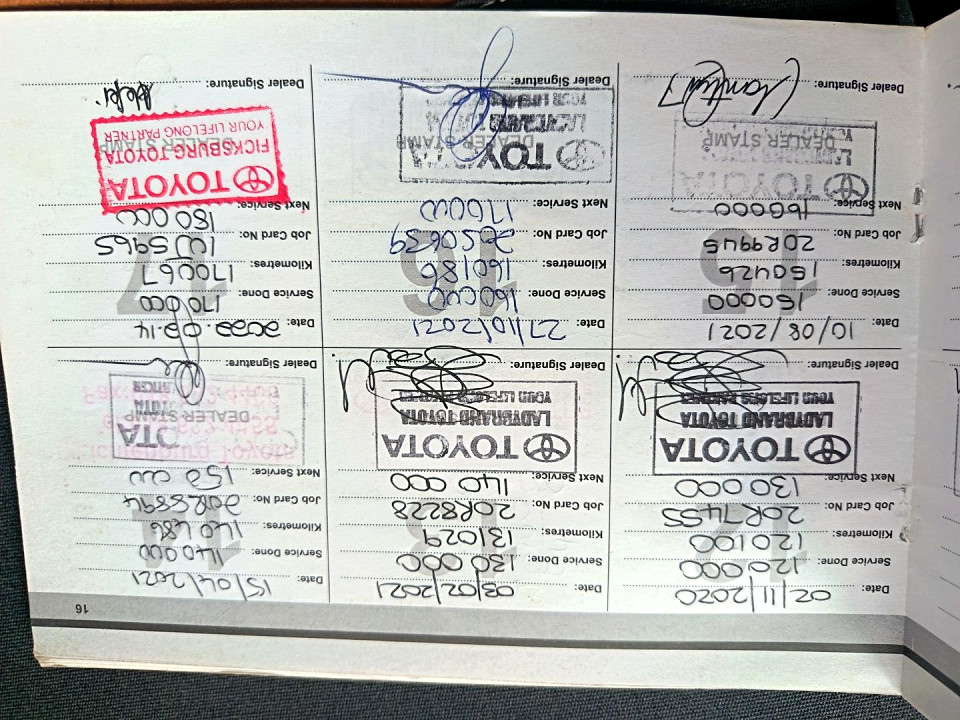 16
Date: 02/11/2020
Service Done: 120000
Kilometres: 120100
Job Card No: 20R7455
Next Service: 130000
TOYOTA
LADYBRAND TOYOTA
YOUR LIFELONG PARTNER
Dealer Signature:
13
Date: 03/02/2021
Service Done: 130 000
Kilometres: 131029
Job Card No: 20R8228
Next Service: 140 000
TOYOTA
LADYBRAND TOYOTA
YOUR LIFELONG PARTNER
Dealer Signature:
14
Date: 15/04/2021
Service Done: 140000
Kilometres: 140486
Job Card No: 20R8894
Next Service: 150 000
OTA
DEALER STAMP
Dealer Signature:
15
Date: 10/08/2021
Service Done: 150000
Kilometres: 150426
Job Card No: 20R9945
Next Service: 160000
TOYOTA
DEALER STAMP
Dealer Signature:
16
Date: 27/10/2021
Service Done: 160000
Kilometres: 160186
Job Card No: 20S0639
Next Service: 170000
TOYOTA
DEALER STAMP
Dealer Signature:
17
Date: 2022.03.14
Service Done: 170000
Kilometres: 170067
Job Card No: 1W5965
Next Service: 180 000
TOYOTA
FICKSBURG TOYOTA
DEALER STAMP
YOUR LIFELONG PARTNER
Dealer Signature: